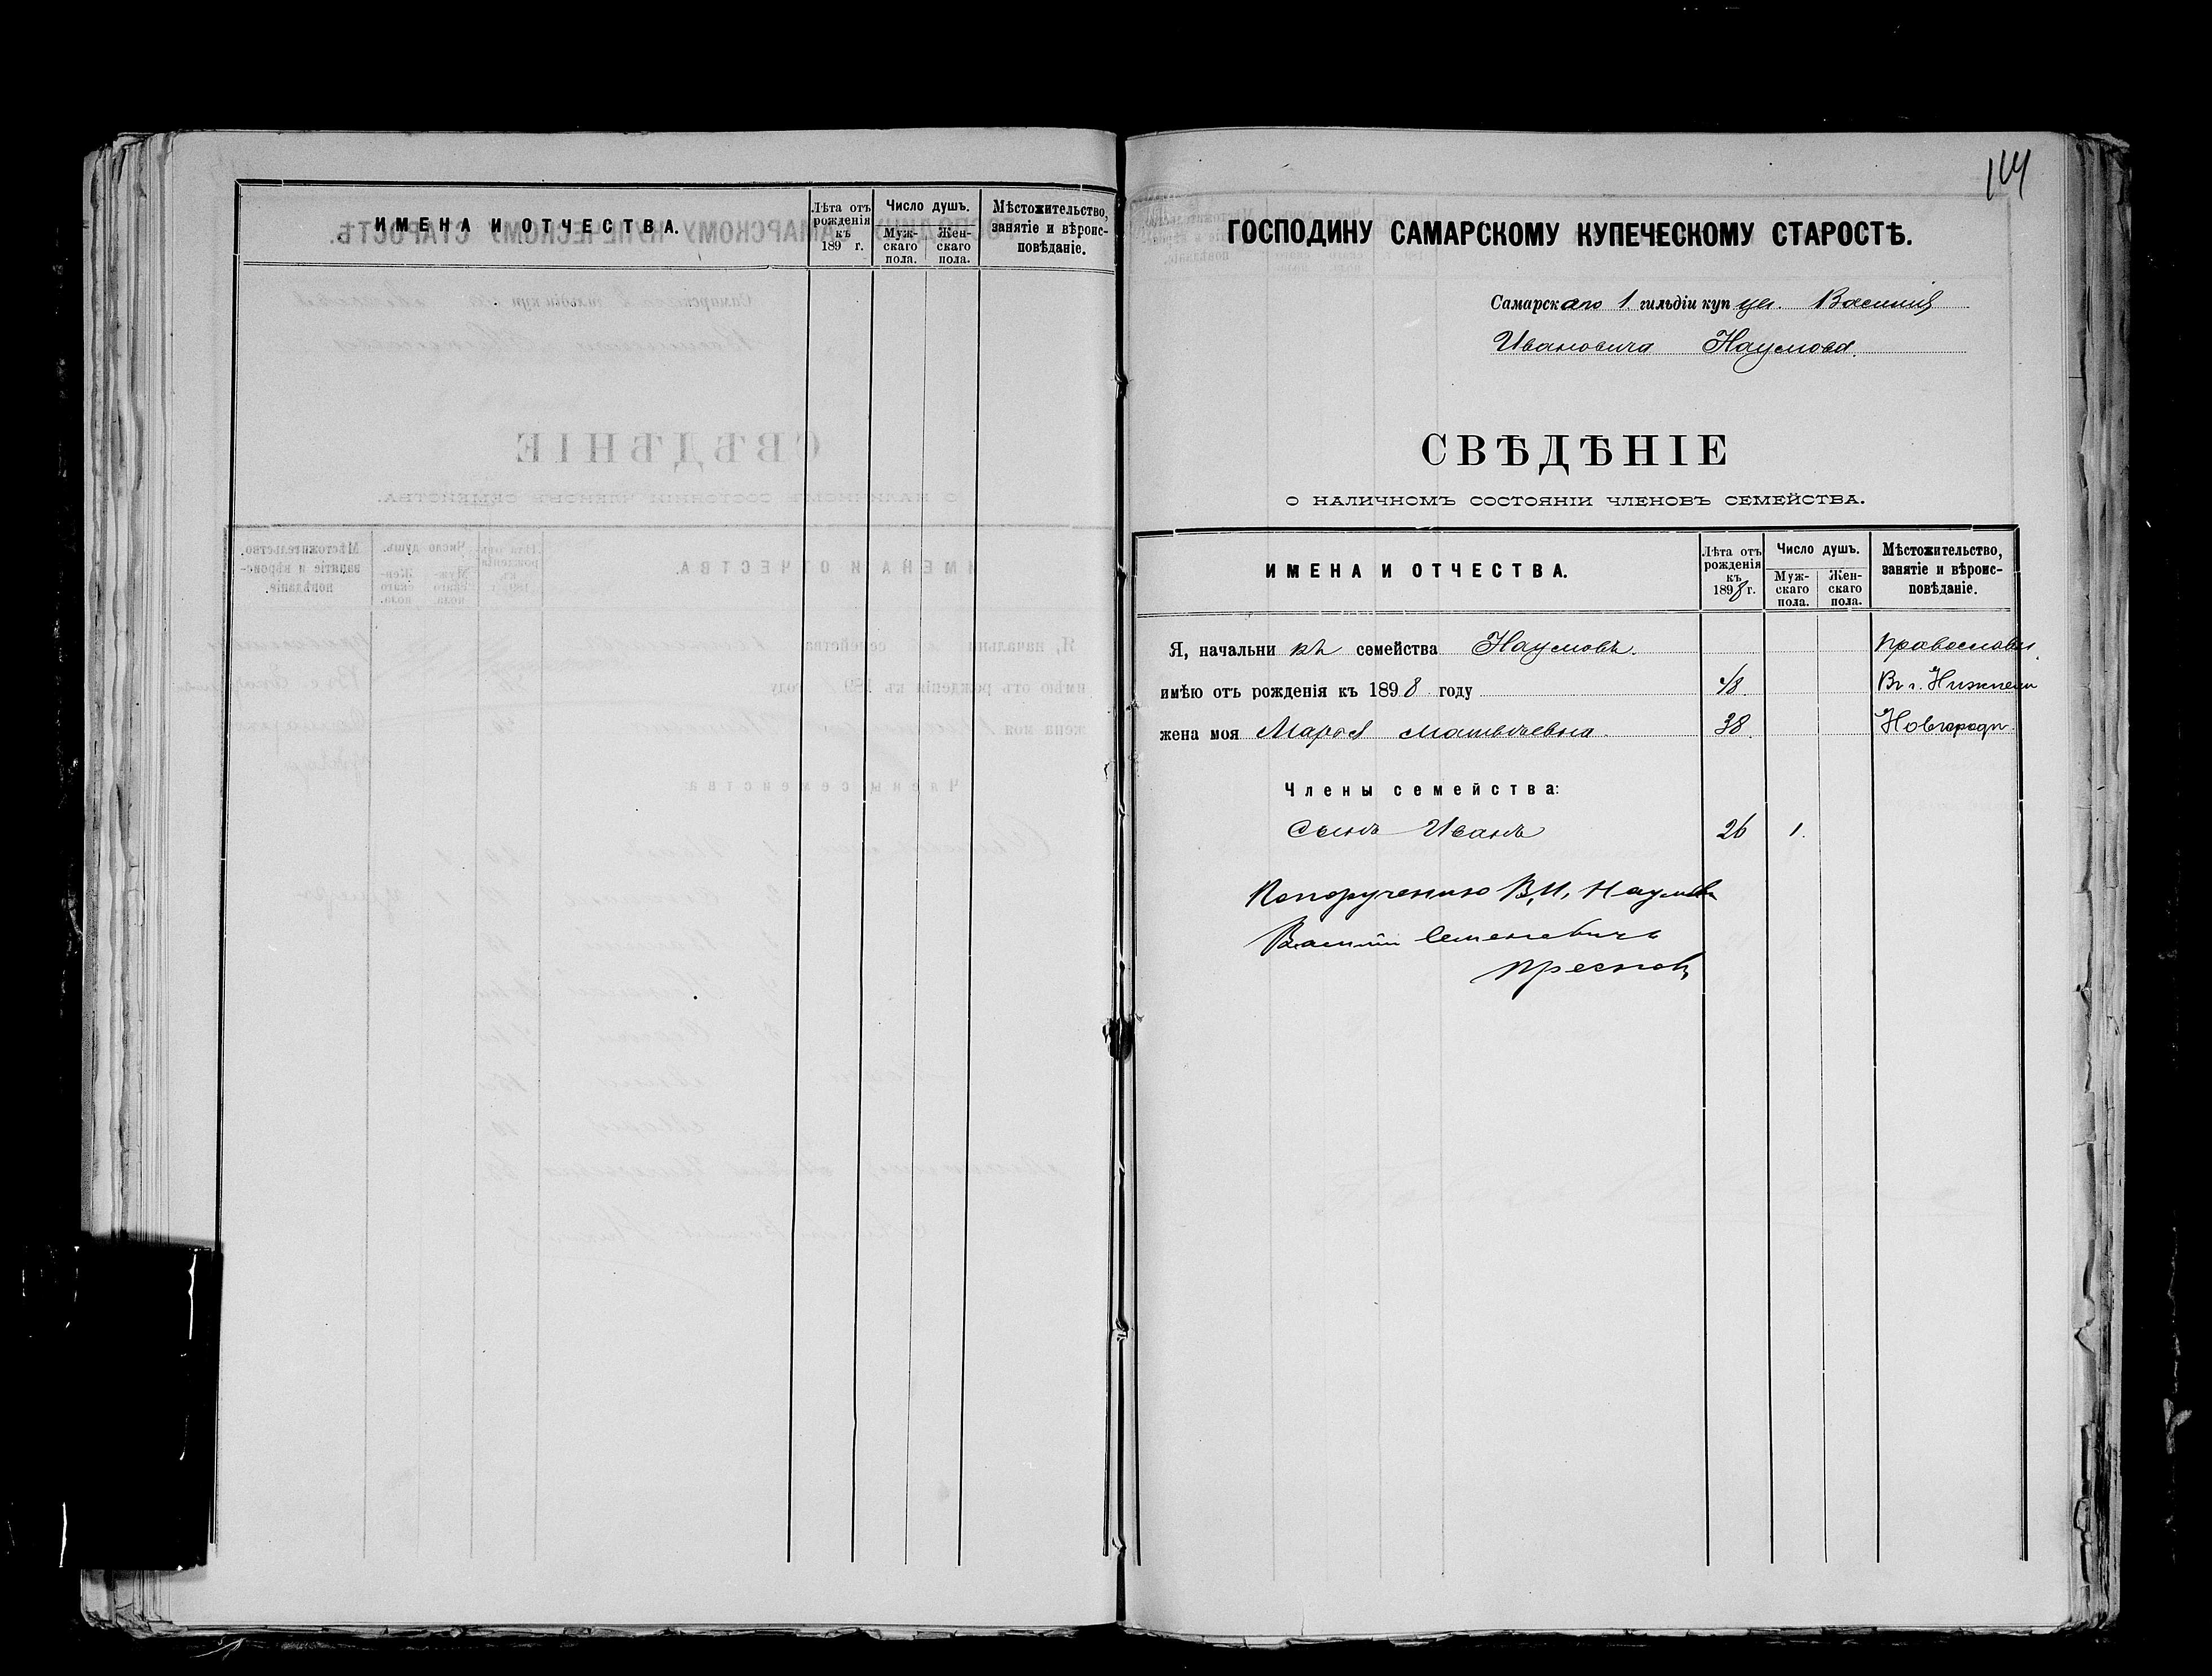 ИМЕНА И ОТЧЕСТВА.
Лѣта отъ рожденія къ 189 г.
Число душъ.
Муж-скаго пола.
Жен-скаго пола.
Мѣстожительство, занятіе и вѣроис-повѣданіе.
114
ГОСПОДИНУ САМАРСКОМУ КУПЕЧЕСКОМУ СТАРОСТѢ.
Самарскаго 1. гильдіи купца. Василія
Ивановича Наумова.
СВѢДѢНІЕ
О НАЛИЧНОМЪ СОСТОЯНІИ ЧЛЕНОВЪ СЕМЕЙСТВА.
ИМЕНА И ОТЧЕСТВА.
Лѣта отъ рожденія къ 1898 г.
Число душъ.
Муж-скаго пола.
Жен-скаго пола.
Мѣстожительство, занятіе и вѣроис-повѣданіе.
Я, начальникъ семейства Наумовъ. Православн.
имѣю отъ рожденія къ 1898 году 48. Въ г. Нижнемъ
жена моя Марья Матвѣевна. 38. Новгородѣ.
Члены семейства:
Сынъ Иванъ 26 1.
По порученію В. И. Наумова
Василій Семеновичъ
Пресновъ